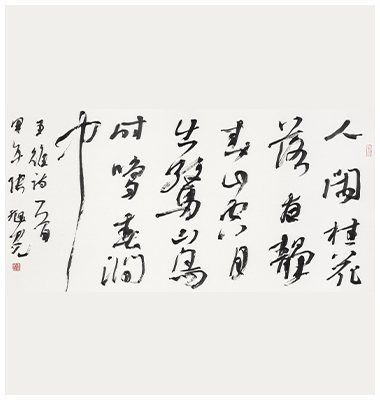 人闲桂花
落夜静
春山空月
出驚山鸟
时鸣春涧
中
王维诗一首
甲午張旭光